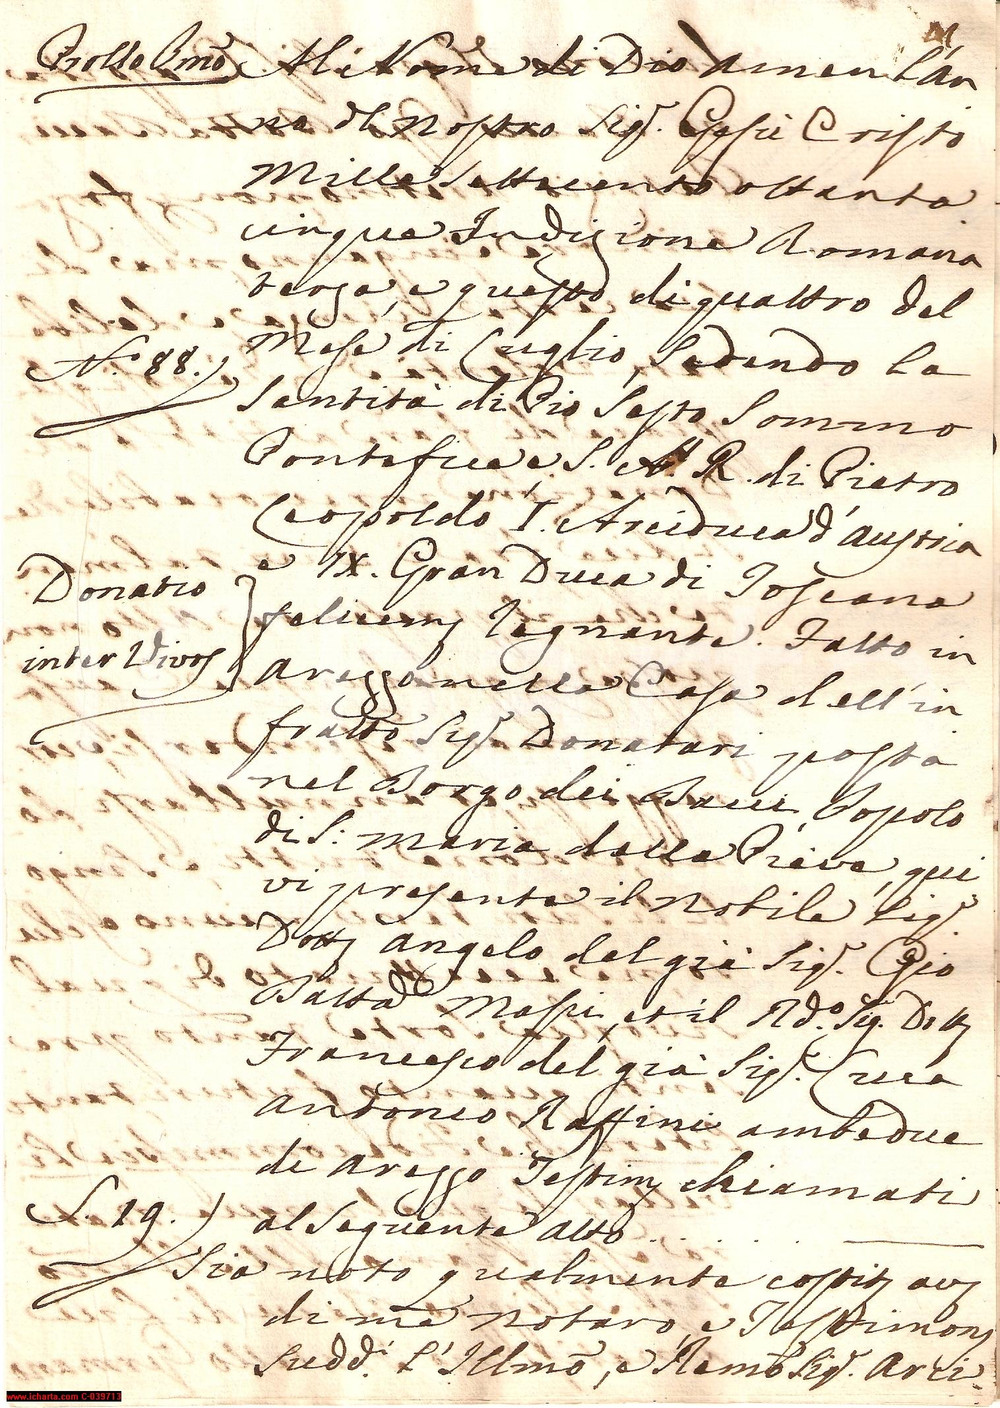 Protto Pmo Al Nome di Dio Amen L'An
no del Nostro Sigr. Gesù Cristo
Mille Settecento ottanta
cinque Indizione Romana
terza, e questo di quattro del
Mese di Luglio, Sedendo la
N.° 88.
Santità di Pio Sesto Sommo
Pontefice, e S. A. R. di Pietro
Leopoldo I. Arciduca d'Austria
e IX. Gran Duca di Toscana
Donatio
inter Vivos
felicem. Regnante. Fatto in
Arezzo nella Casa dell'in
fratto Sigr. Donatari posta
nel Borgo dei Bacci, Popolo
di S: Maria della Pieve, qui
vi presente il Nobile Sigr.
Dott. Angelo del già Sigr. Gio
Batta Massi, et il Rdo. Sig. Dott.
Francesco del già Sigr. Luca
Andoneo Raffini ambedue
di Arezzo Testim. chiamati
S. 19.
al Seguente atto . . . . .
Sia noto qualmente costit. av.
di me Notaro e Testimonj
Sudd.i L'Illmo, e Remo Sigr. Arci
www.icharta.com C-039713